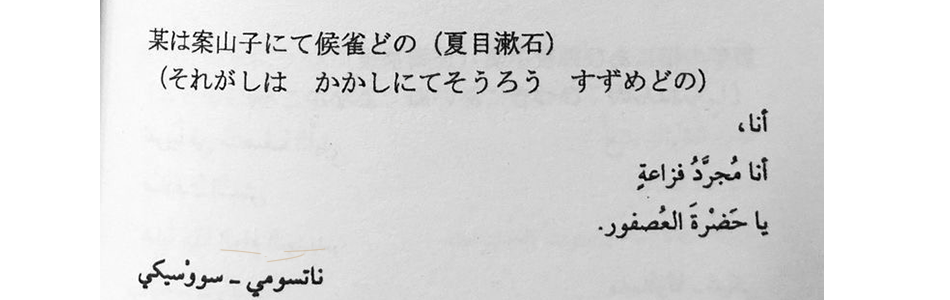 某は案山子にて候雀どの（夏目漱石）
（それがしは　かかしにてそうろう　すずめどの）
أنا،
أنا مُجرَّدُ فزاعةٍ
يا حَضْرةَ العُصفور.
ناتسومي - سووْسيكي